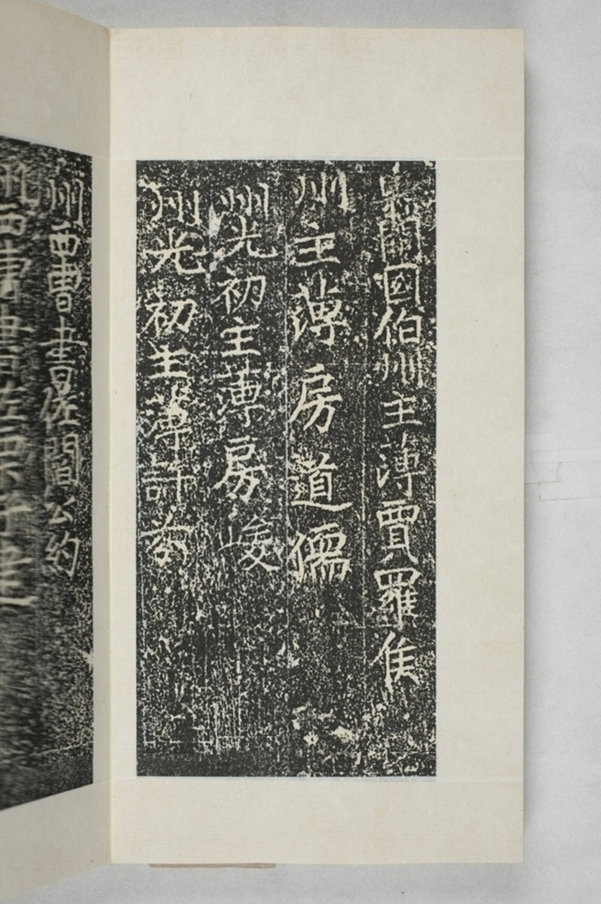 縣開國伯州主薄賈羅侯
州主薄房道儒
州光初主薄房峻
州光初主薄許
州西曹書佐閻公約
州西曹書佐